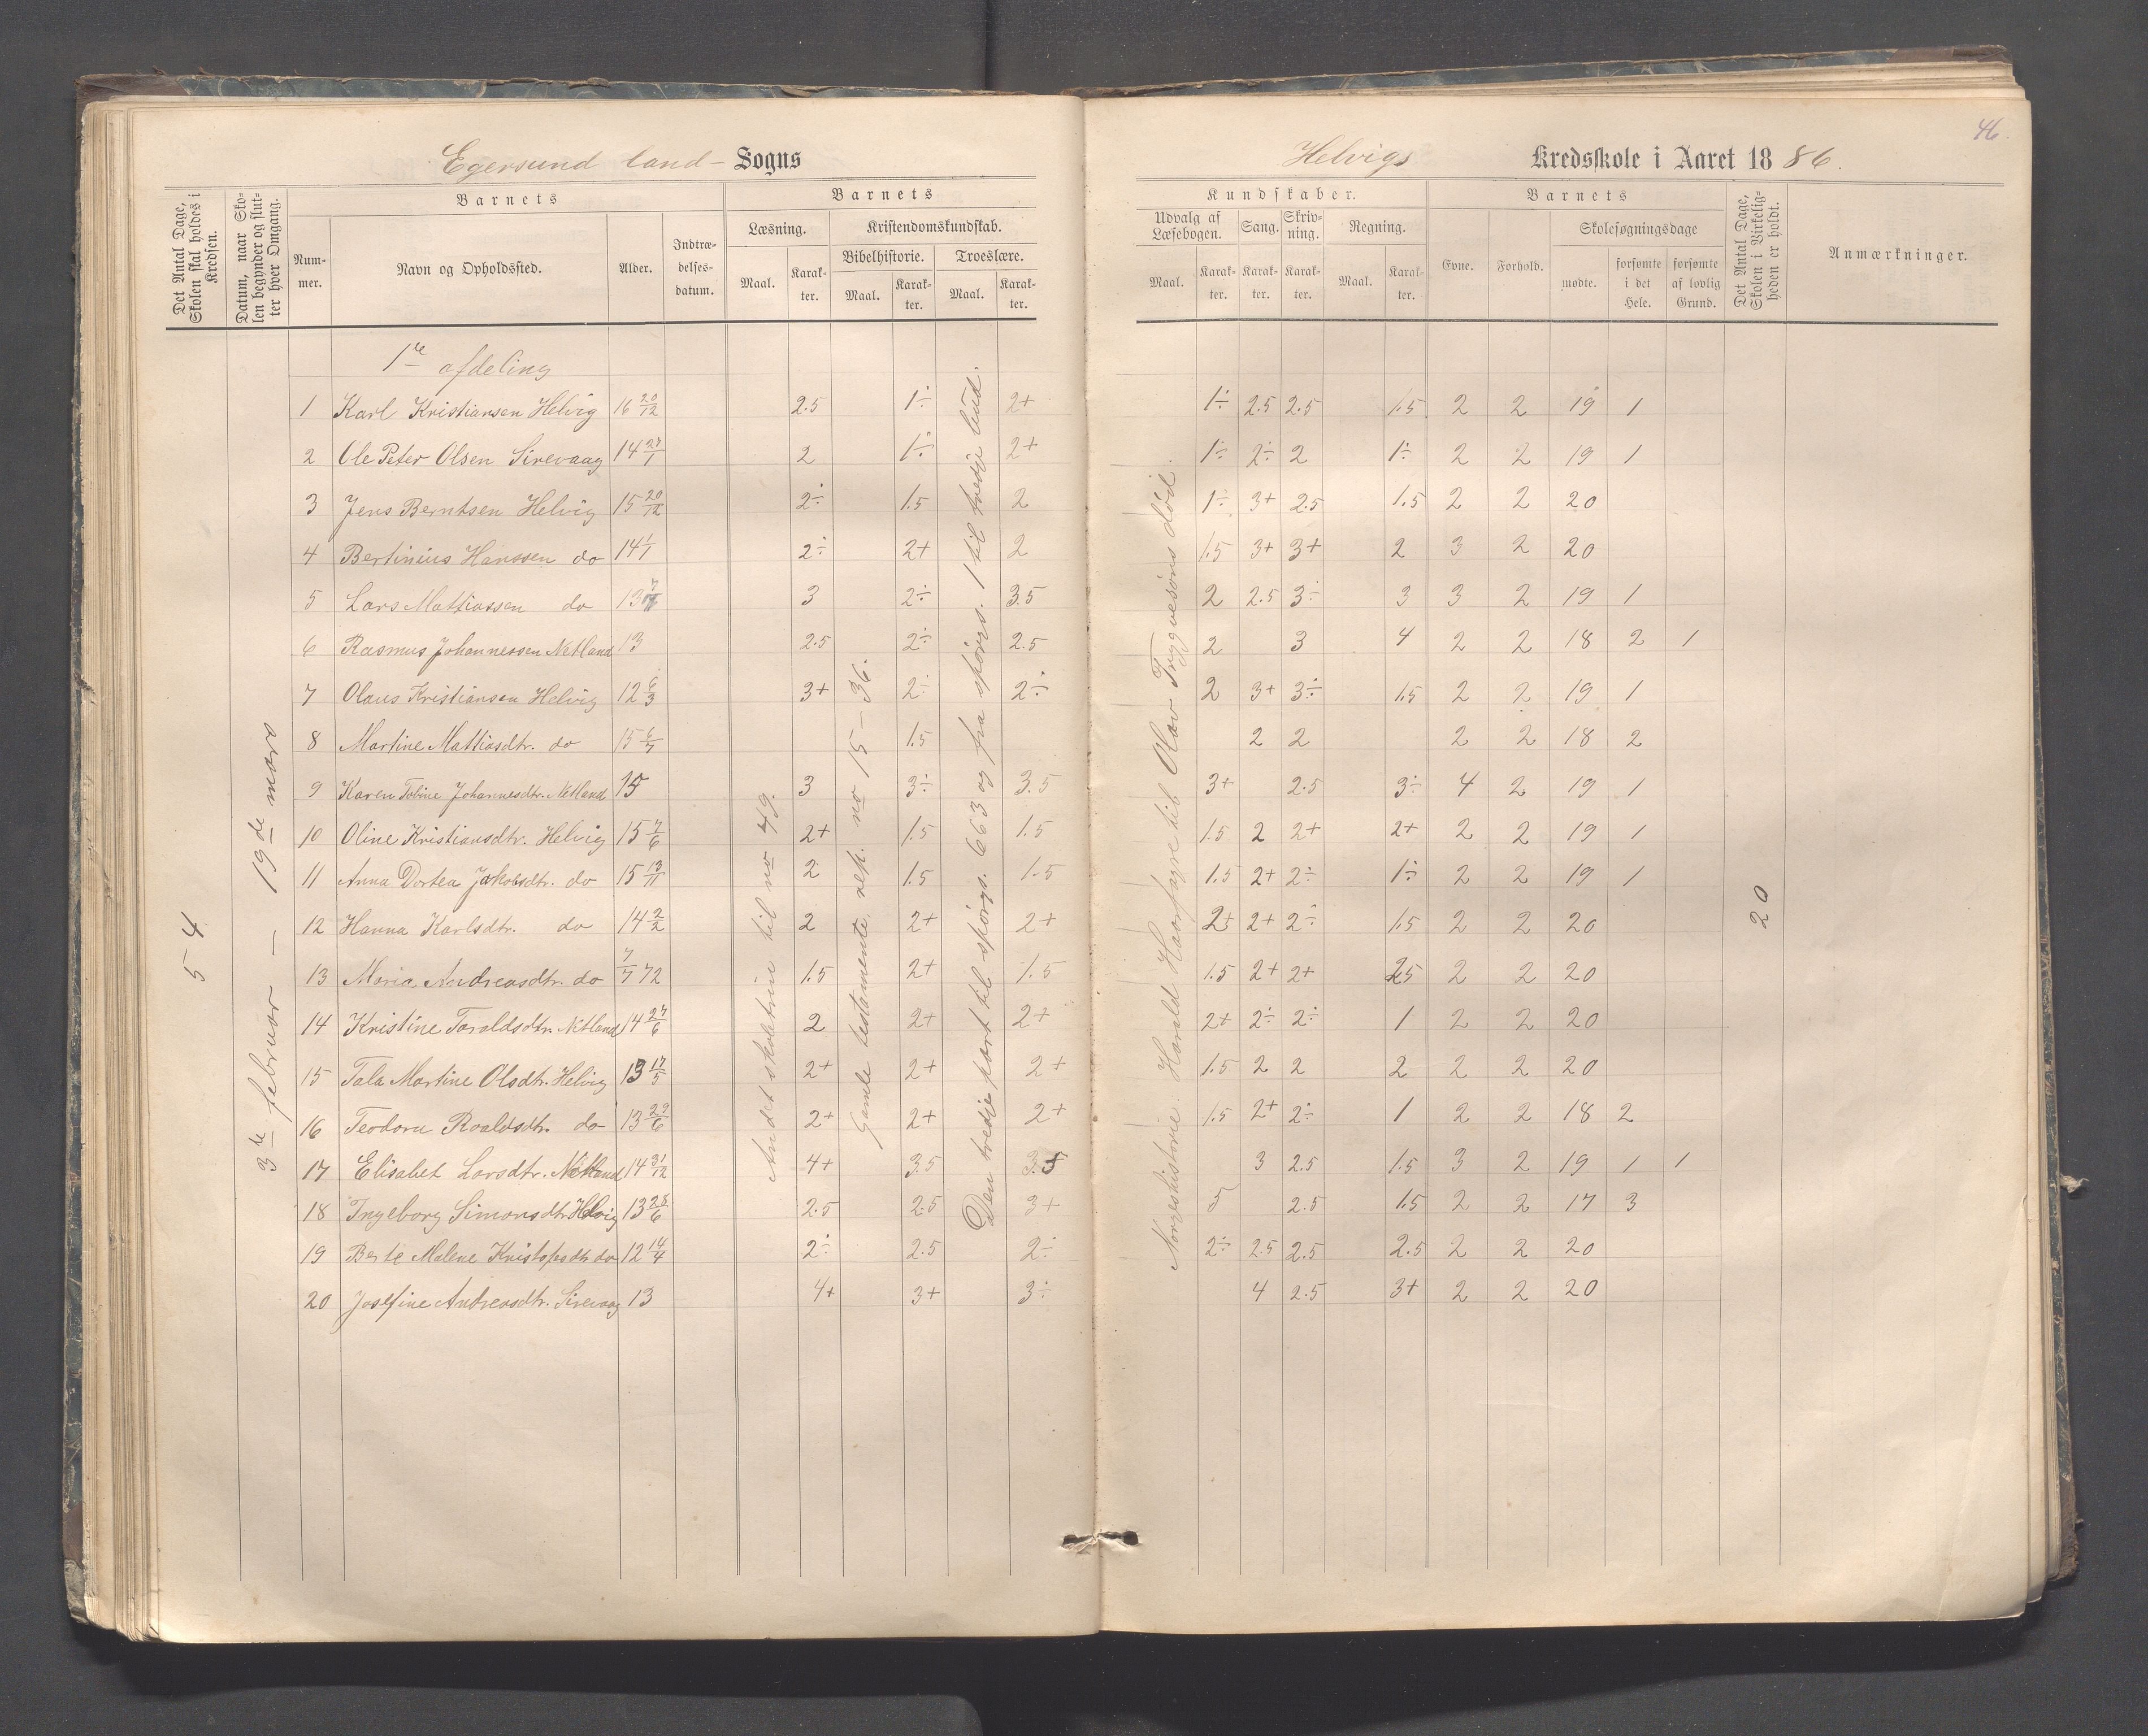 46.
Egersund land- Sogns
Helvigs Kredsskole i Aaret 1886.
Det Antal Dage, Skolen skal holdes i Kredsen.
Datum, naar Skolen begynder og slutter hver Omgang.
Barnets
Nummer.
Navn og Opholdssted.
Alder.
Indtrædelsesdatum.
Barnets
Læsning.
Maal.
Karakter.
Kristendomskundskab.
Bibelhistorie.
Maal.
Karakter.
Troeslære.
Maal.
Karakter.
Kundskaber.
Udvalg af Læsebogen.
Maal.
Karakter.
Sang.
Karakter.
Skrivning.
Karakter.
Regning.
Maal.
Karakter.
Barnets
Evne.
Forhold.
Skolesøgningsdage
mødte.
forsømte i det Hele.
forsømte af lovlig Grund.
Det Antal Dage, Skolen i Virkeligheden er holdt.
Anmærkninger.
54
3die februar — 19de mars
1te afdeling
1 Karl Kristiansen Helvig 16 20/12 2.5 1÷ 2+ 1÷ 2.5 2.5 1.5 2 2 19 1
2 Ole Peter Olsen Sirevaag 14 27/1 2 1÷ 2+ 1÷ 2÷ 2 1÷ 2 2 19 1
3 Jens Berntsen Helvig 15 20/12 2÷ 1.5 2 1÷ 3+ 2.5 1.5 2 2 20
4 Bertinius Hanssen do 14 1/1 2÷ 2+ 2 1.5 3+ 3+ 2 3 2 20
5 Lars Mattiassen do 13 3 2÷ 3.5 2 2.5 3÷ 3 3 2 19 1
6 Rasmus Johannessen Netland 13 2.5 2÷ 2.5 2 3 4 2 2 18 2 1
7 Olaus Kristiansen Helvig 12 6/3 3+ 2÷ 2÷ 2 3+ 3÷ 1.5 2 2 19 1
8 Martine Mattiasdtr. do 15 6/7 1.5 2 2 2 2 18 2
9 Karen Tobine Johannesdtr. Netland 15 3 3÷ 3.5 3+ 2.5 3÷ 4 2 19 1
10 Oline Kristiansdtr. Helvig 15 7/6 2+ 1.5 1.5 1.5 2 2+ 2+ 2 2 19 1
11 Anna Dortea Jakobsdtr. do 15 13/11 2 1.5 1.5 1.5 2+ 2÷ 1÷ 2 2 19 1
12 Hanna Karlsdtr. do 14 2/2 2 2+ 2+ 2+ 2+ 2÷ 1.5 2 2 20
13 Maria Andreasdtr. do 7/7 72 1.5 2+ 1.5 1.5 2+ 2+ 2.5 2 2 20
14 Kristine Taraldsdtr. Netland 14 27/6 2 2+ 2+ 2+ 2÷ 2÷ 1 2 2 20
15 Tala Martine Olsdtr. Helvig 13 17/5 2+ 2+ 2+ 1.5 2 2 2 2 2 20
16 Teodora Roaldsdtr. do 13 29/6 2+ 2+ 2+ 1.5 2+ 2÷ 1 2 2 18 2
17 Elisabet Larsdtr. Netland 14 31/12 4+ 3.5 3.5 3 2.5 1.5 3 2 19 1 1
18 Ingeborg Simonsdtr. Helvig 13 28/6 2.5 2.5 3+ 5 2.5 1.5 2 2 17 3
19 Berte Malene Kristofsdtr. do 12 14/4 2÷ 2.5 2÷ 2÷ 2.5 2.5 2.5 2 2 20
20 Josefine Andreasdtr. Sirevaag 13 4+ 3+ 3÷ 4 2.5 3+ 2 2 20
Andet skoletrin til no 49.
Gamle testamente, rep. no 15 – 36.
Den tredje part til spørgs. 663 og fra spørgs. 1 til tredje bud.
Norgeshistorie. Harald Haarfagre til Olav Trygvesøns død.
20